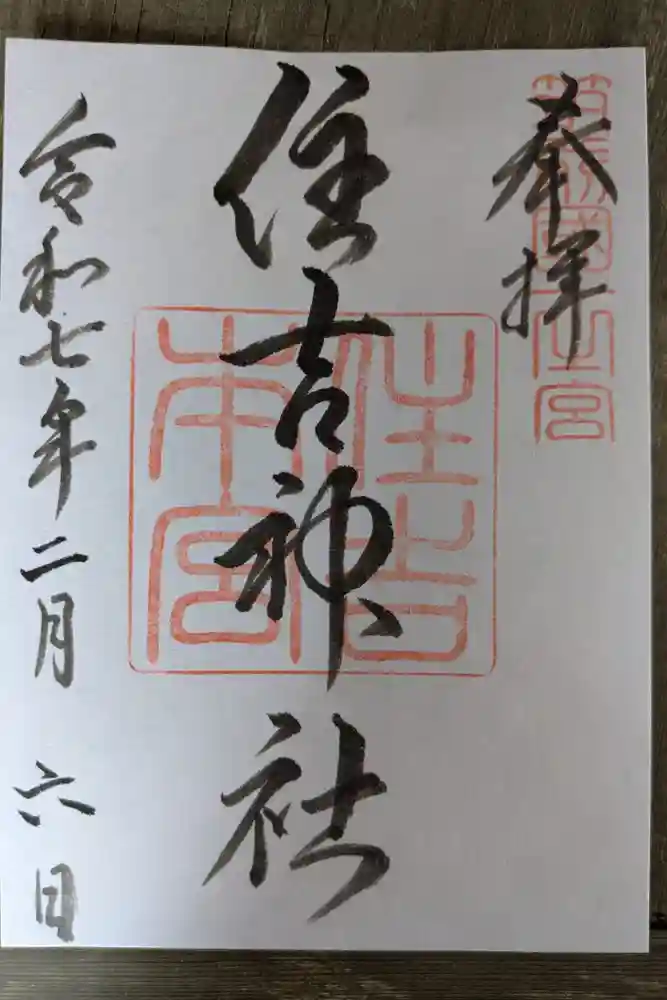 奉拝
筑前國一之宮
住吉神社
住吉本宮
令和七年二月六日